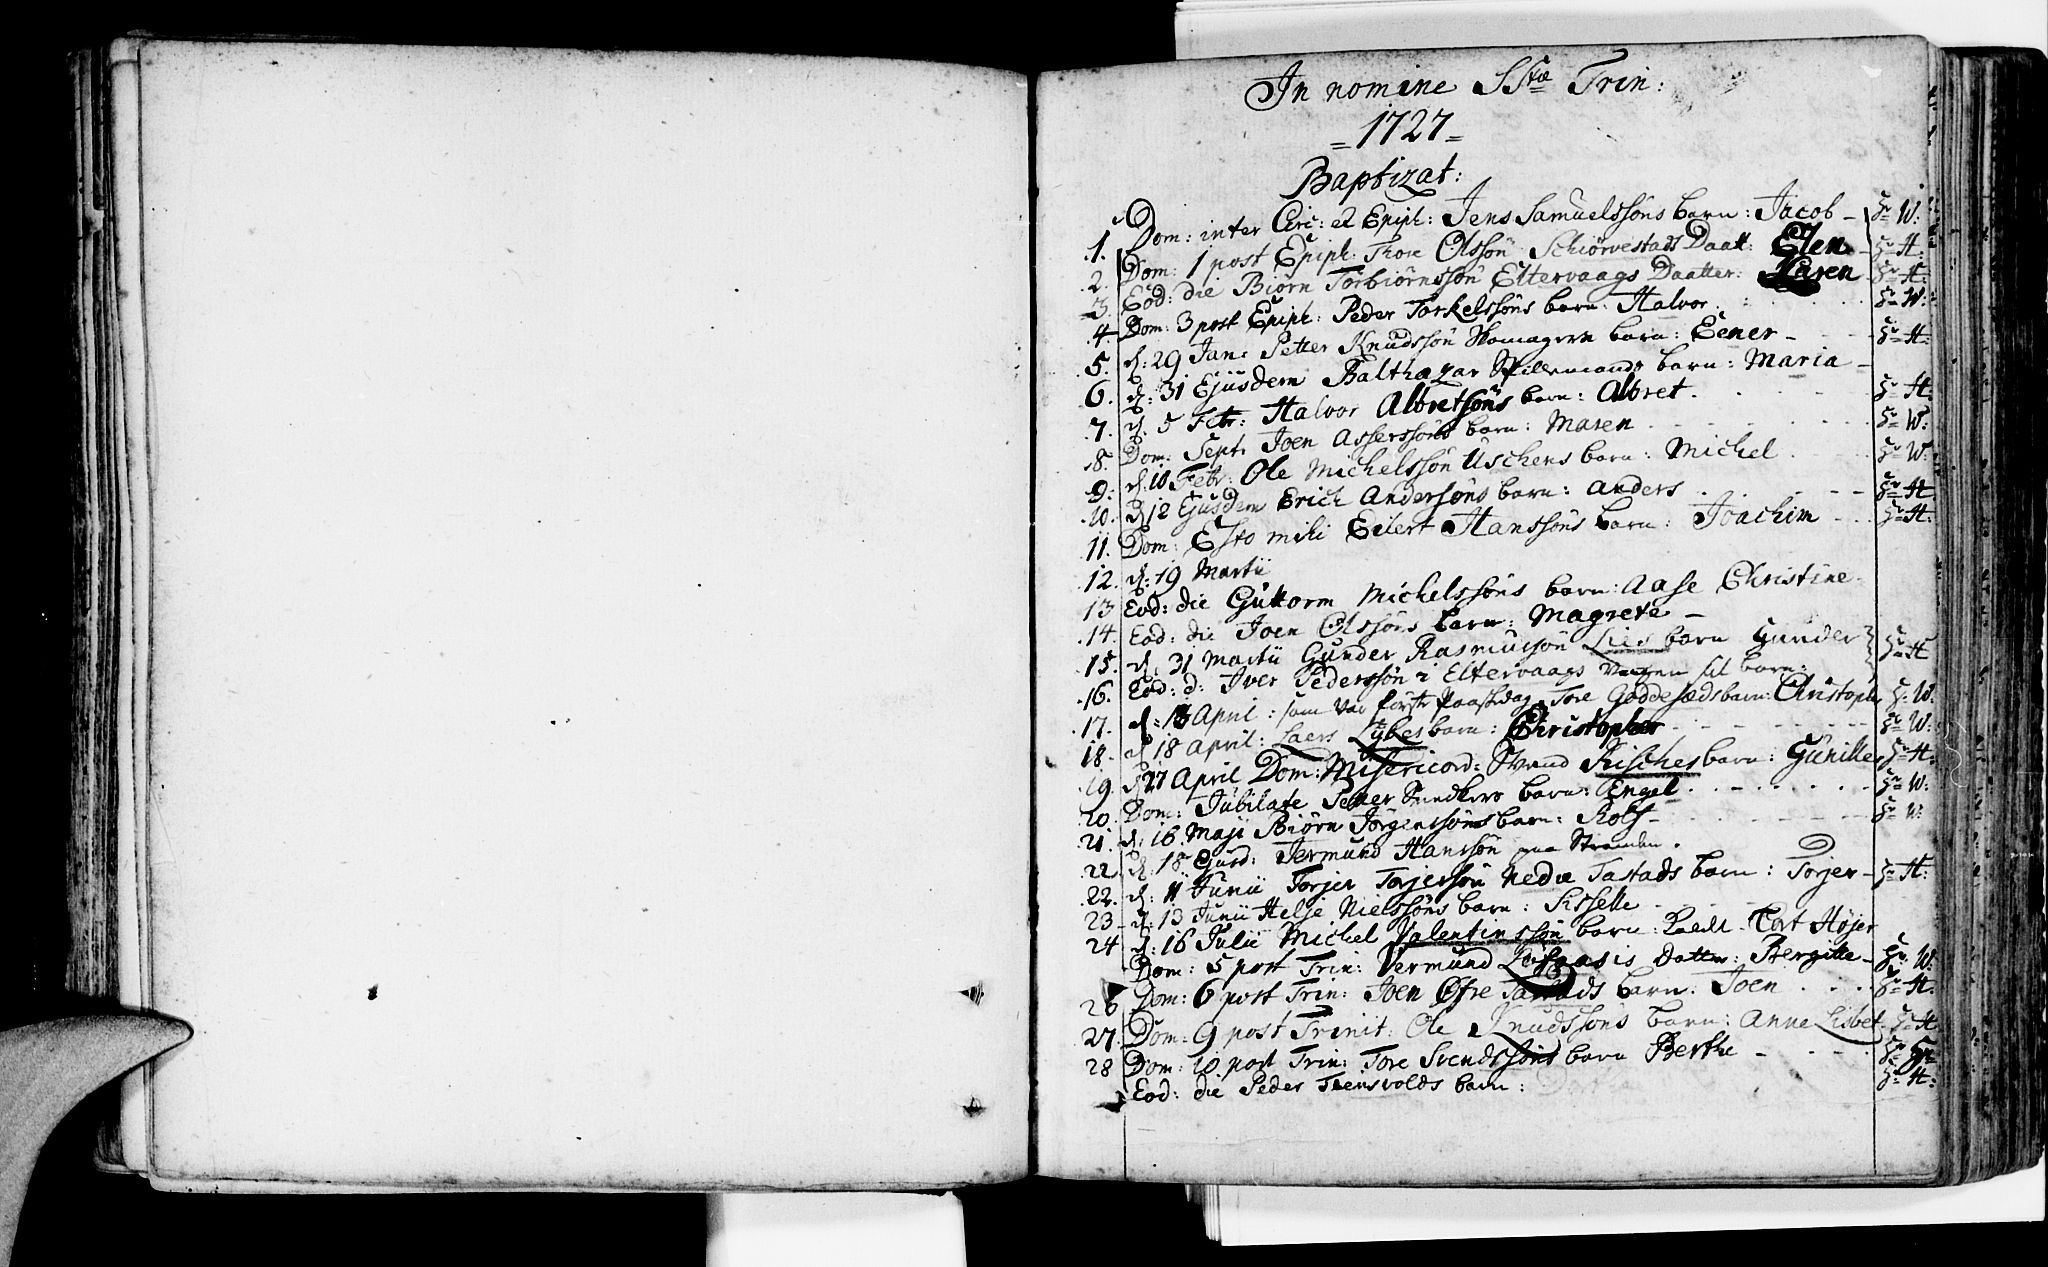 In nomine SStæ Trin:
= 1727 =
Baptizat:
1. Dom: inter Circ: et Epiph: Jens Samuelssøns barn: Jacob – Hr W:
2. Dom: 1 post Epiph: Thore Olssøn Schiørvestads Daatt: Elen – Hr H:
3. Eod: die Biørn Torbiørnssøn Eltervaags Daatter: Karen – Hr H:
4. Dom: 3 post Epiph: Peder Torkelssøns barn: Halvor. Hr W:
5. d: 29 Jan: Petter Knudssøn Skomagern barn: Eener – Hr H:
6. d: 31 Ejusdem Balthazar barn: Maria –
7. d. 5 Febr: Halvor Albretsøns barn: Albret. Hr H:
8. Dom: Sept: Joen Asserssøns barn: Maren Hr W:
9. d. 10 Febr: Ole Michelssøn Uschens barn: Michel Hr W.
10. d 12 Ejusdem Erich Andersøns barn: Anders Hr H.
11. Dom: Esto mihi Eilert Hanssøns barn: Joachim Hr H:
12. d: 19 Martii
13 Eod: die Guttorm Michelssøns barn: Aase Christine
14. Eod: die Joen Olssøns barn: Magrete –
15. d. 31 Martii Gunder Rasmussøn Lies barn Gunder Hr H
16. Eod: d: Iver Pederssøn i Eltervaags barn:
17. d: 13 April: som var første Paaskedag Tore Goddesæds barn: Christopher Hr W.
18. d 18 April: Laers Lykes barn: Christopher Hr W:
19. d 27 April Dom: Misericord: Svend Fisches barn: Gunille Hr H:
20. Dom: Jubilate Petter barn: Engel Hr W:
21. d. 16. Maji Biørn Jørgenssøns barn: Rolf – Hr W:
22. d: 18 Ejusd: Jermund Hanssøn paa Stranden.
22. d: 11 Junii Torjer Torjersøn Nedre Tastads barn: Torjer – Hr H:
23 – d: 13 Junii Helje Nielssøns barn: Sisselle
24 d: 16 Julii Michel Valentinssøn barn: kaldt Cort Højer
Dom: 5 post Trin: Vermund Datter: Bergitte – Hr W:
26 Dom: 6 post Trin: Joen Øfre Tastads barn: Joen Hr H:
27. Dom: 9 post Trinit: Ole Knudssøns barn: Anne Lisbet Hr H
28 Dom: 10. post Trin: Tore Svendssøns barn Berthe –
Eod: die Peder Tiensvolds barn: Hr H: